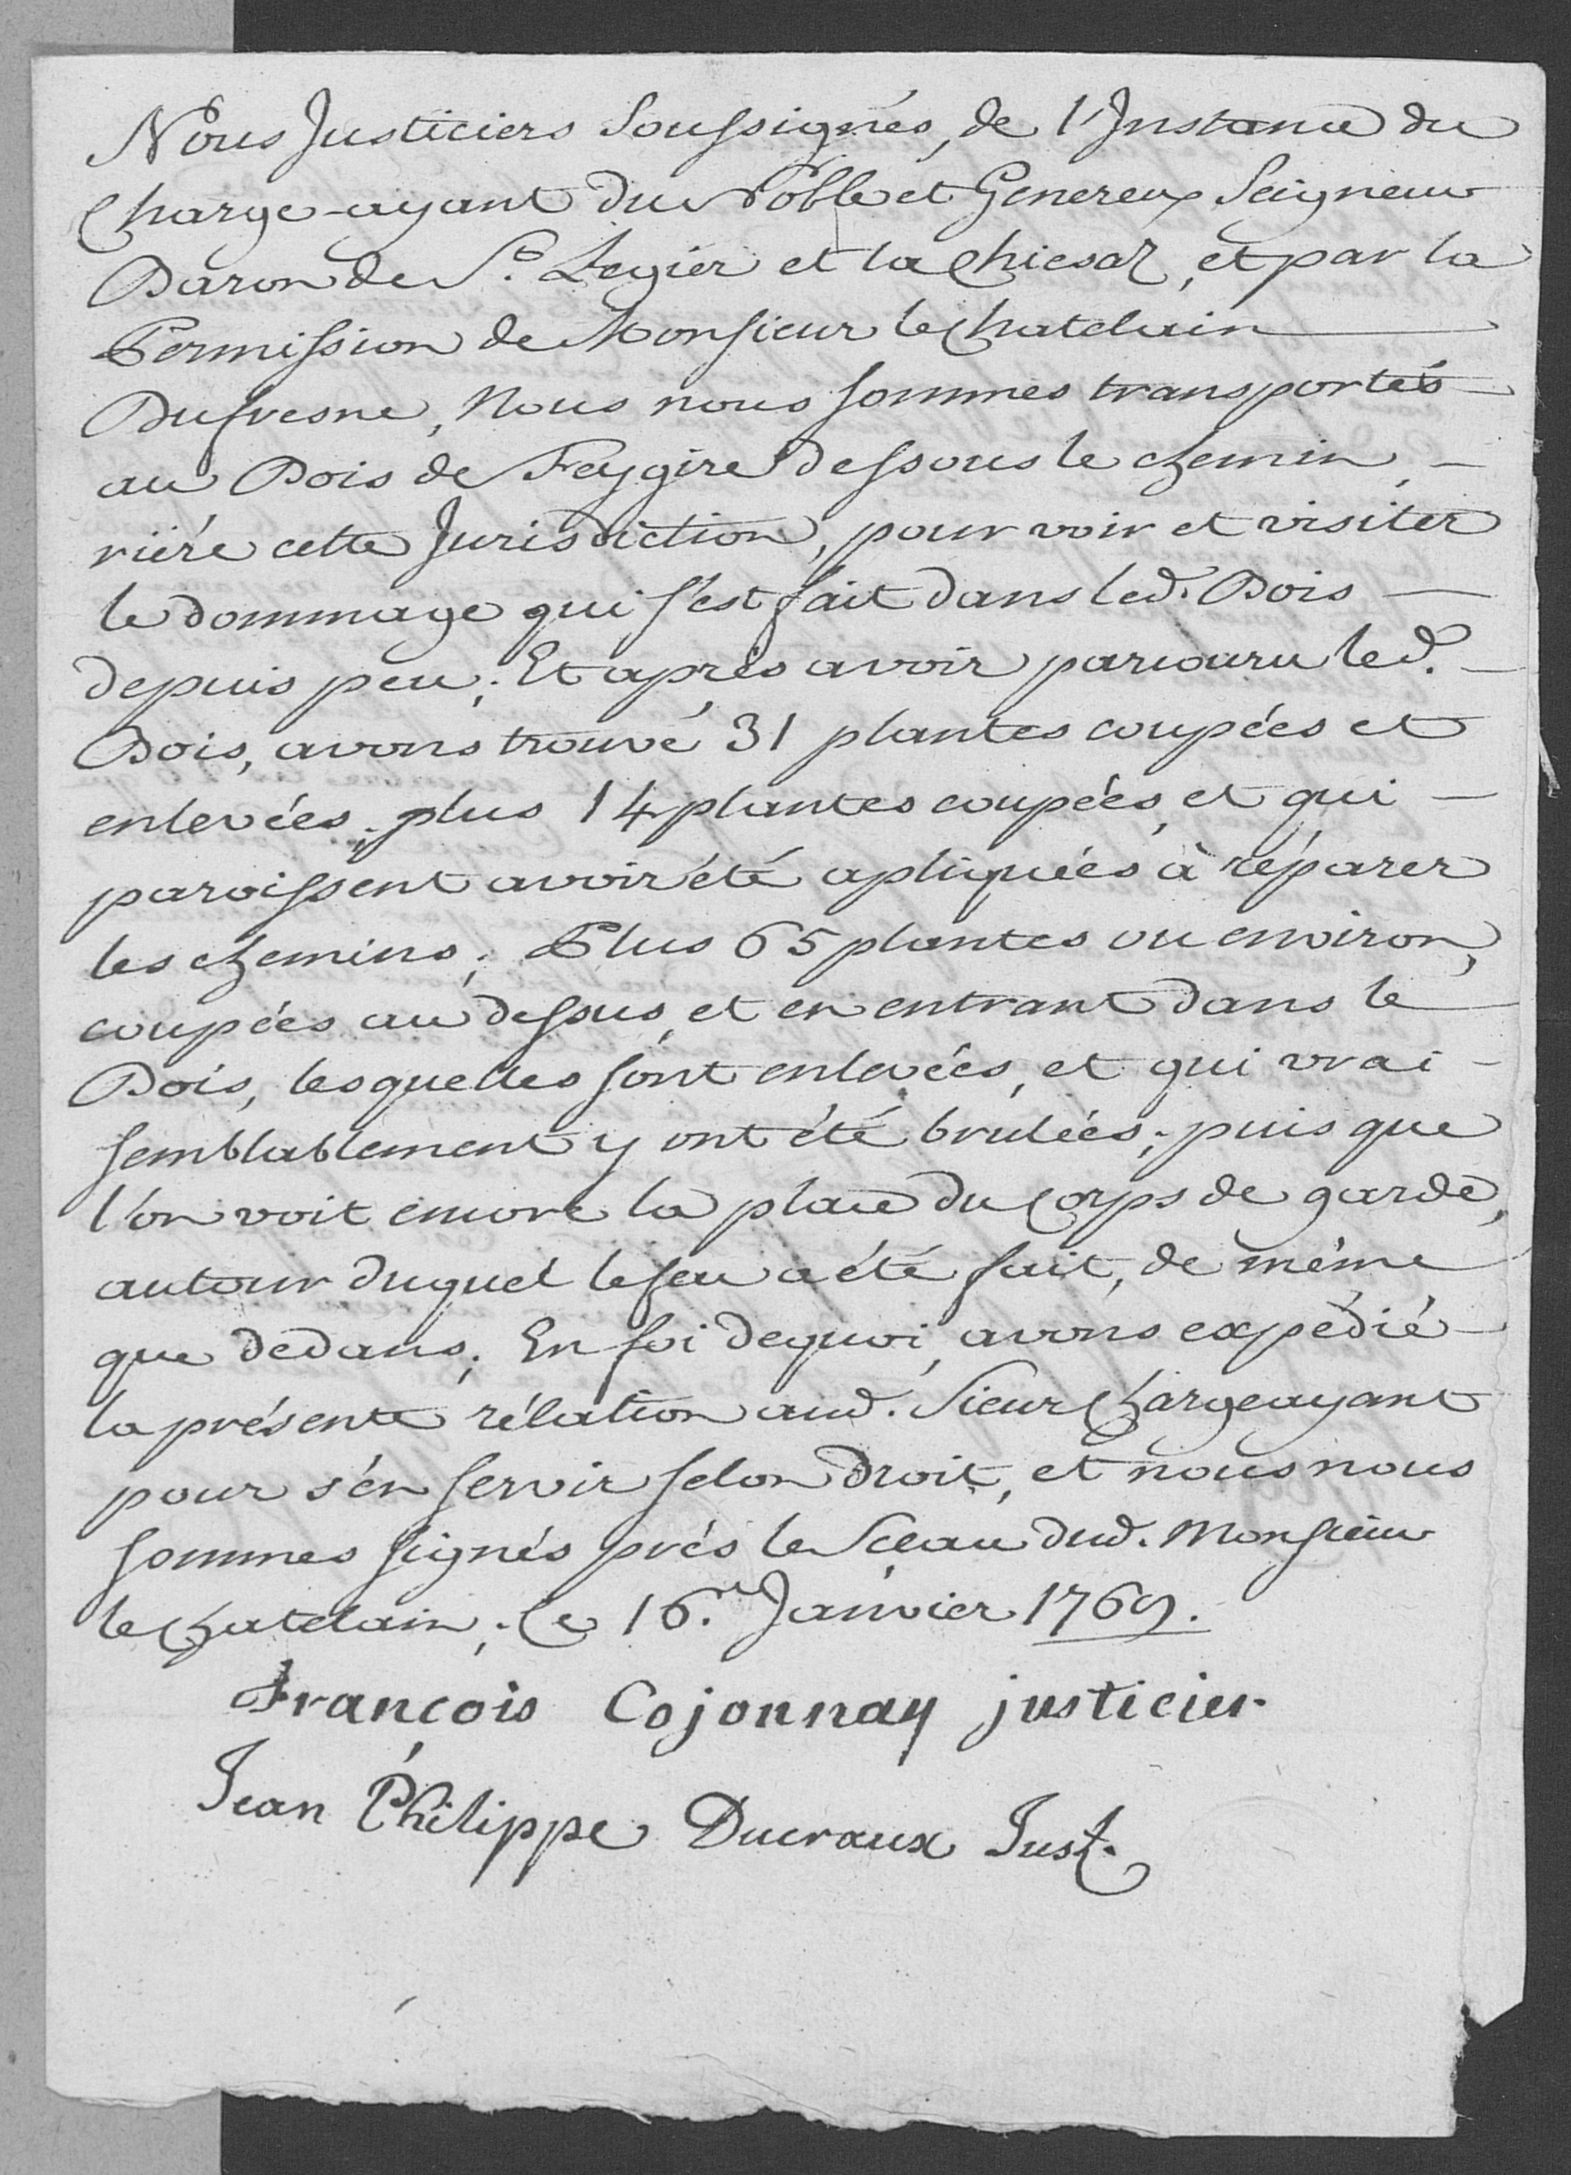 Nous Justiciers Soussignés, de l'Instance du
Charge-ayant du Noble et Genereux Seigneur
Baron de St. Legier et la Chiesaz, et par la
Permission de Monsieur le Chatelain
Dufresne, Nous nous sommes transportés
au Bois de Feygire dessous le chemin,
riére cette Jurisdiction, pour voir et visiter
le dommage qui s'est fait dans led. Bois
depuis peu; Et après avoir parcouru led.
Bois, avons trouvé 31 plantes coupées et
enlevées; plus 14 plantes coupées, et qui
paroissent avoir été apliquées à réparer
les chemins; Plus 65 plantes ou environ,
coupées au dessus, et en entrant dans le
Bois, lesquelles sont enlevées, et qui vrai-
semblablement y ont été brulées; puis que
l'on voit encore la place du Corps de garde,
autour duquel le feu a été fait, de même
que dedans; En foi dequoi, avons expédié
la présente rélation aud. Sieur Chargeayant
pour s'en servir selon droit, et nous nous
sommes signés prés le Sceau dud. Monsieur
le Chatelain; Ce 16.e Janvier 1769.
François Cojonnay justicier
Jean Philippe Ducraux Just.